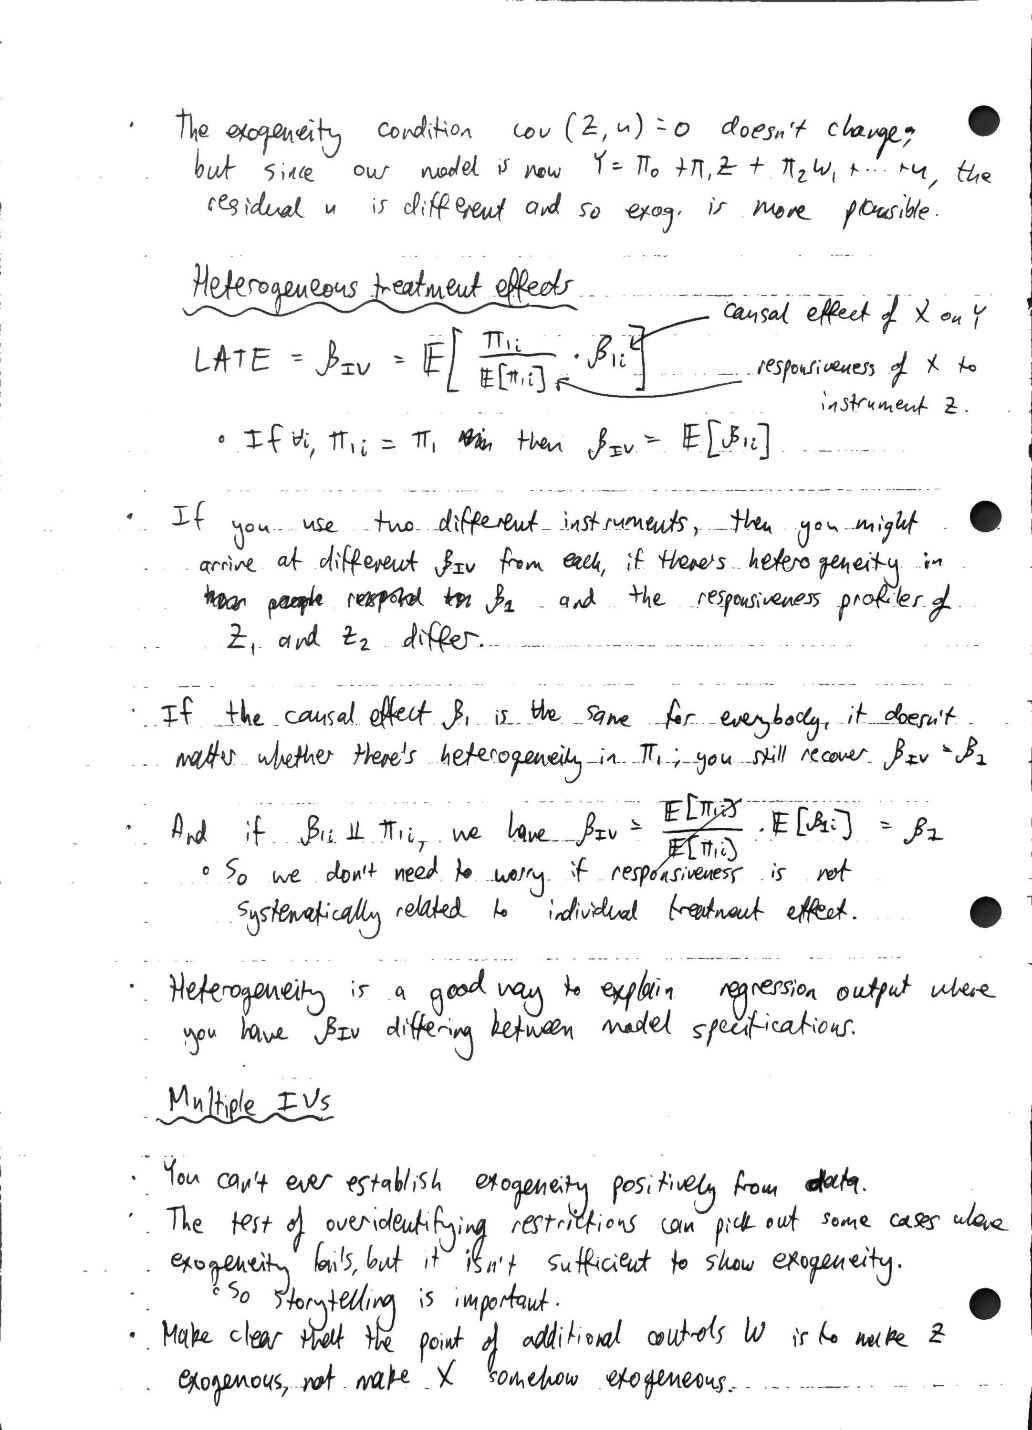 · The exogeneity condition cov (Z, u) = 0 doesn't change;
but since our model is now Y = π₀ + π₁Z + π₂W₁ + ... + u, the
residual u is different and so exog. is more plausible.
Heterogeneous treatment effects
causal effect of X on Y
LATE = β_IV = E[ π₁ᵢ / E[π₁ᵢ] · β₁ᵢ ]
responsiveness of X to
instrument Z.
∘ If ∀i, π₁ᵢ = π₁ then β_IV = E[β₁ᵢ]
· If you use two different instruments, then you might
arrive at different β_IV from each, if there's heterogeneity in
how people respond to β₁ and the responsiveness profiles of
Z₁ and Z₂ differ.
· If the causal effect β₁ is the same for everybody, it doesn't
matter whether there's heterogeneity in π₁; you still recover β_IV = β₁
· And if β₁ᵢ ⫫ π₁ᵢ, we have β_IV = E[π₁ᵢ] / E[π₁ᵢ] · E[β₁ᵢ] = β₁
∘ So we don't need to worry if responsiveness is not
systematically related to individual treatment effect.
· Heterogeneity is a good way to explain regression output where
you have β_IV differing between model specifications.
Multiple IVs
· You can't ever establish exogeneity positively from data.
· The test of overidentifying restrictions can pick out some cases where
exogeneity fails, but it isn't sufficient to show exogeneity.
∘ So storytelling is important.
· Make clear that the point of additional controls W is to make Z
exogenous, not make X somehow exogeneous.